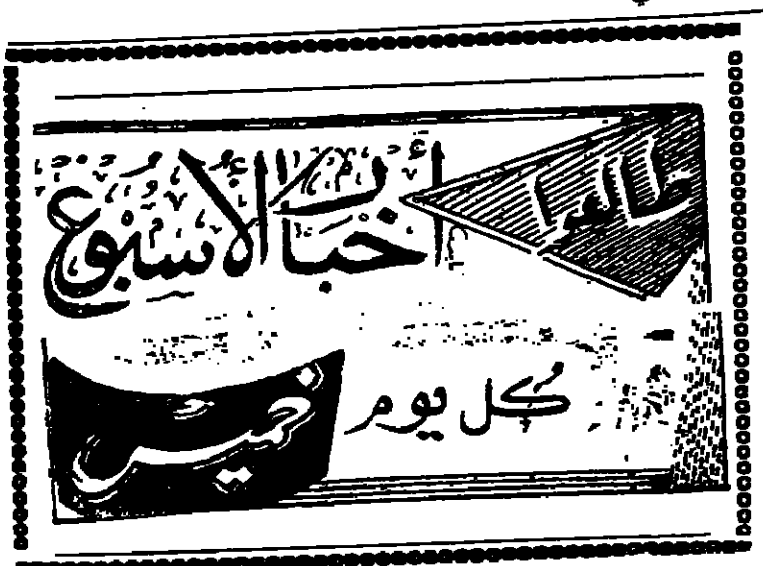 طالعوا
اخبار الاسبوع
كل يوم
خميس